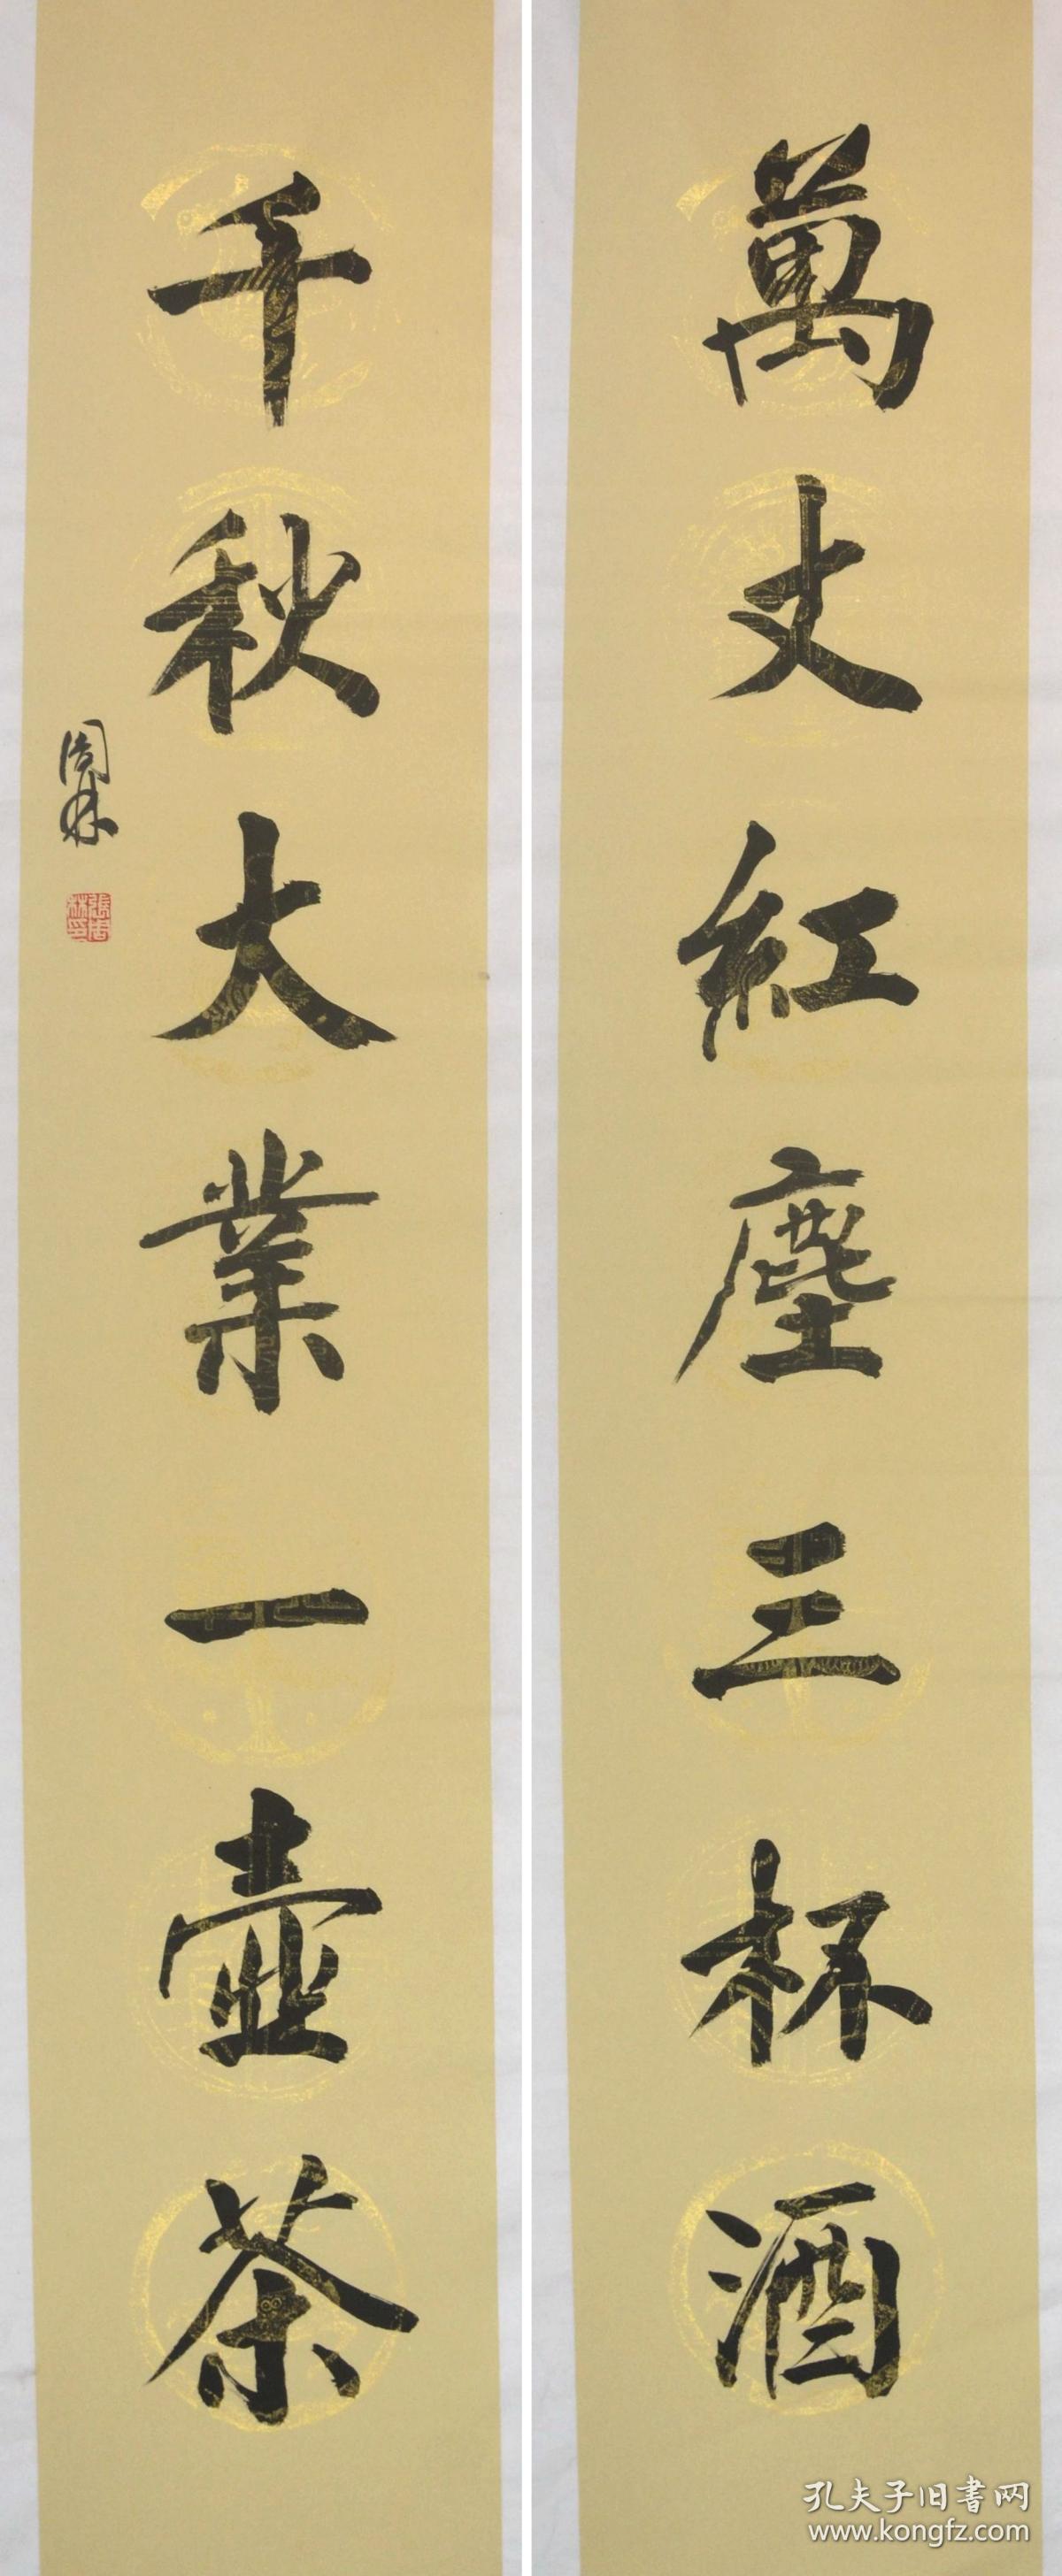 萬丈紅塵三杯酒
千秋大業一壺茶
孔夫子旧書网
www.kongfz.com